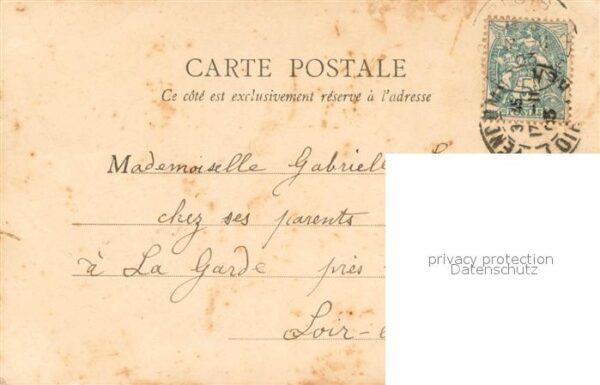 CARTE POSTALE
Ce côté est exclusivement réservé à l'adresse
Mademoiselle Gabriel
chez ses parents
à La Garde près
Loir-
privacy protection
Datenschutz